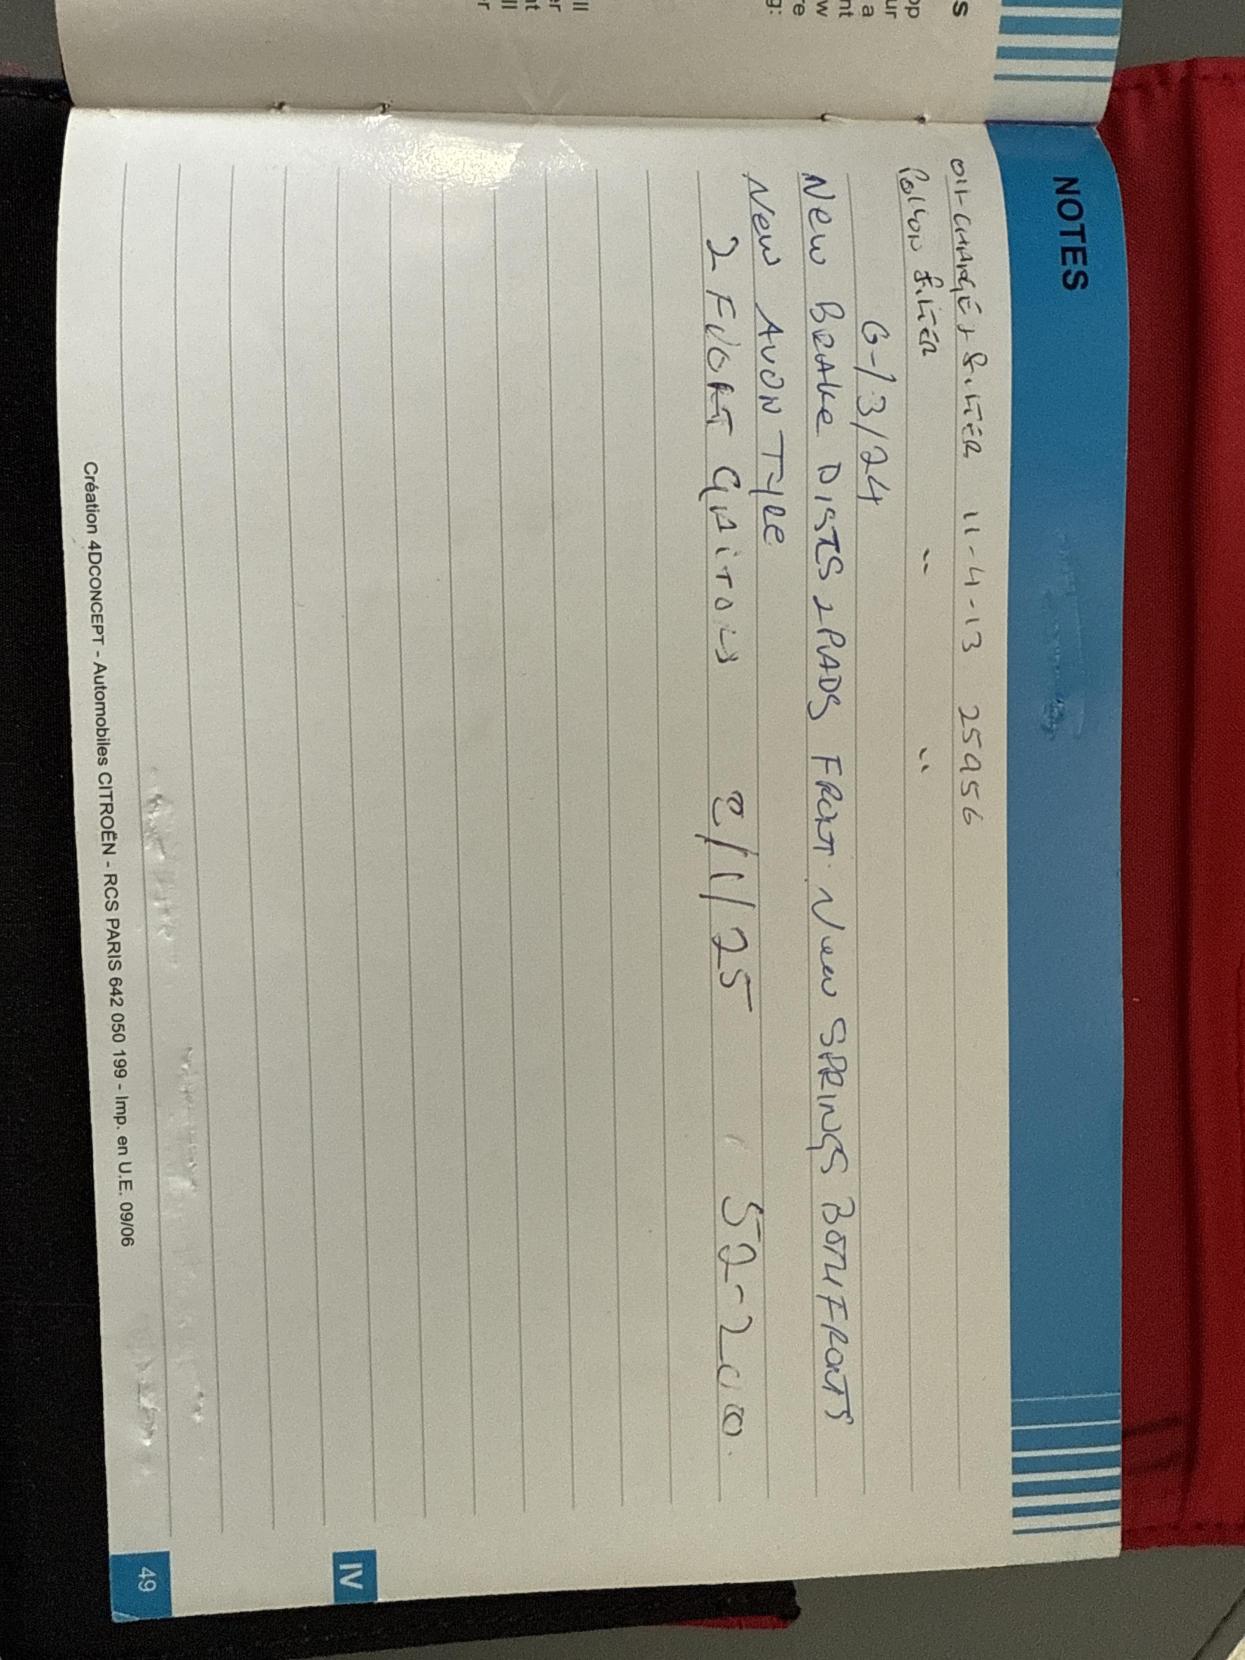 NOTES
OIL CHANGE & FILTER 11-4-13 25956
Pollon FILTER " "
6-13/24
New BRAKE DISTS 2 PADS FRONT. New SPRINGS BOTH FRONTS
New AVON TYRE
2 FRONT GAITORS 8/1/25 52-200.
IV
49
Création 4DCONCEPT - Automobiles CITROËN - RCS PARIS 642 050 199 - Imp. en U.E. 09/06